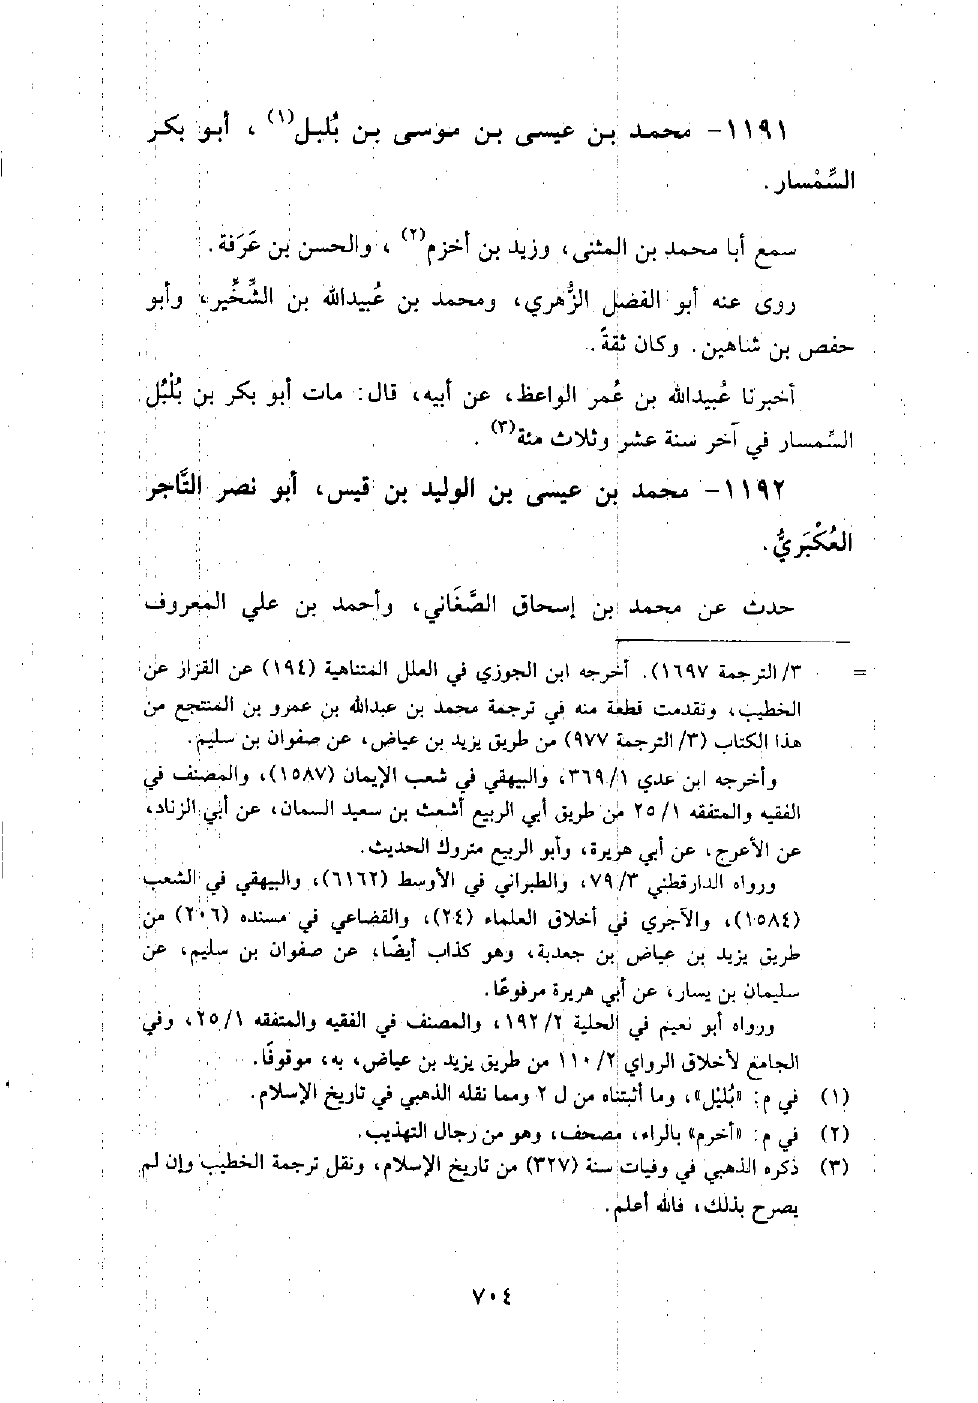 ١١٩١- محمد بن عيسى بن موسى بن بُلبل(١)، أبو بكر
السِّمْسار.
سمع أبا محمد بن المثنى، وزيد بن أخزم(٢)، والحسن بن عَرَفة.
روى عنه أبو الفضل الزُّهري، ومحمد بن عُبيدالله بن الشِّخِّير، وأبو
حفص بن شاهين. وكان ثقةً.
أخبرنا عُبيدالله بن عُمر الواعظ، عن أبيه، قال: مات أبو بكر بن بُلْبُل
السِّمسار في آخر سنة عشر وثلاث مئة(٣).
١١٩٢- محمد بن عيسى بن الوليد بن قيس، أبو نصر التَّاجر
العُكْبَريُّ.
حدث عن محمد بن إسحاق الصَّغَاني، وأحمد بن علي المعروف
= ٣/ الترجمة ١٦٩٧). أخرجه ابن الجوزي في العلل المتناهية (١٩٤) عن القزاز عن
الخطيب، وتقدمت قطعة منه في ترجمة محمد بن عبدالله بن عمرو بن المنتجع من
هذا الكتاب (٣/ الترجمة ٩٧٧) من طريق يزيد بن عياض، عن صفوان بن سليم.
وأخرجه ابن عدي ٣٦٩/١، والبيهقي في شعب الإيمان (١٥٨٧)، والمصنف في
الفقيه والمتفقه ٢٥/١ من طريق أبي الربيع أشعث بن سعيد السمان، عن أبي الزناد،
عن الأعرج، عن أبي هريرة، وأبو الربيع متروك الحديث.
ورواه الدارقطني ٧٩/٣، والطبراني في الأوسط (٦١٦٢)، والبيهقي في الشعب
(١٥٨٤)، والآجري في أخلاق العلماء (٢٤)، والقضاعي في مسنده (٢٠٦) من
طريق يزيد بن عياض بن جعدبة، وهو كذاب أيضًا، عن صفوان بن سليم، عن
سليمان بن يسار، عن أبي هريرة مرفوعًا.
ورواه أبو نعيم في الحلية ١٩٢/٢، والمصنف في الفقيه والمتفقه ٢٥/١، وفي
الجامع لأخلاق الرواي ١١٠/٢ من طريق يزيد بن عياض، به، موقوفًا.
(١) في م: «بُلَيْل»، وما أثبتناه من ل ٢ ومما نقله الذهبي في تاريخ الإسلام.
(٢) في م: «أخرم» بالراء، مصحف، وهو من رجال التهذيب.
(٣) ذكره الذهبي في وفيات سنة (٣٢٧) من تاريخ الإسلام، ونقل ترجمة الخطيب وإن لم
يصرح بذلك، فالله أعلم.
٧٠٤